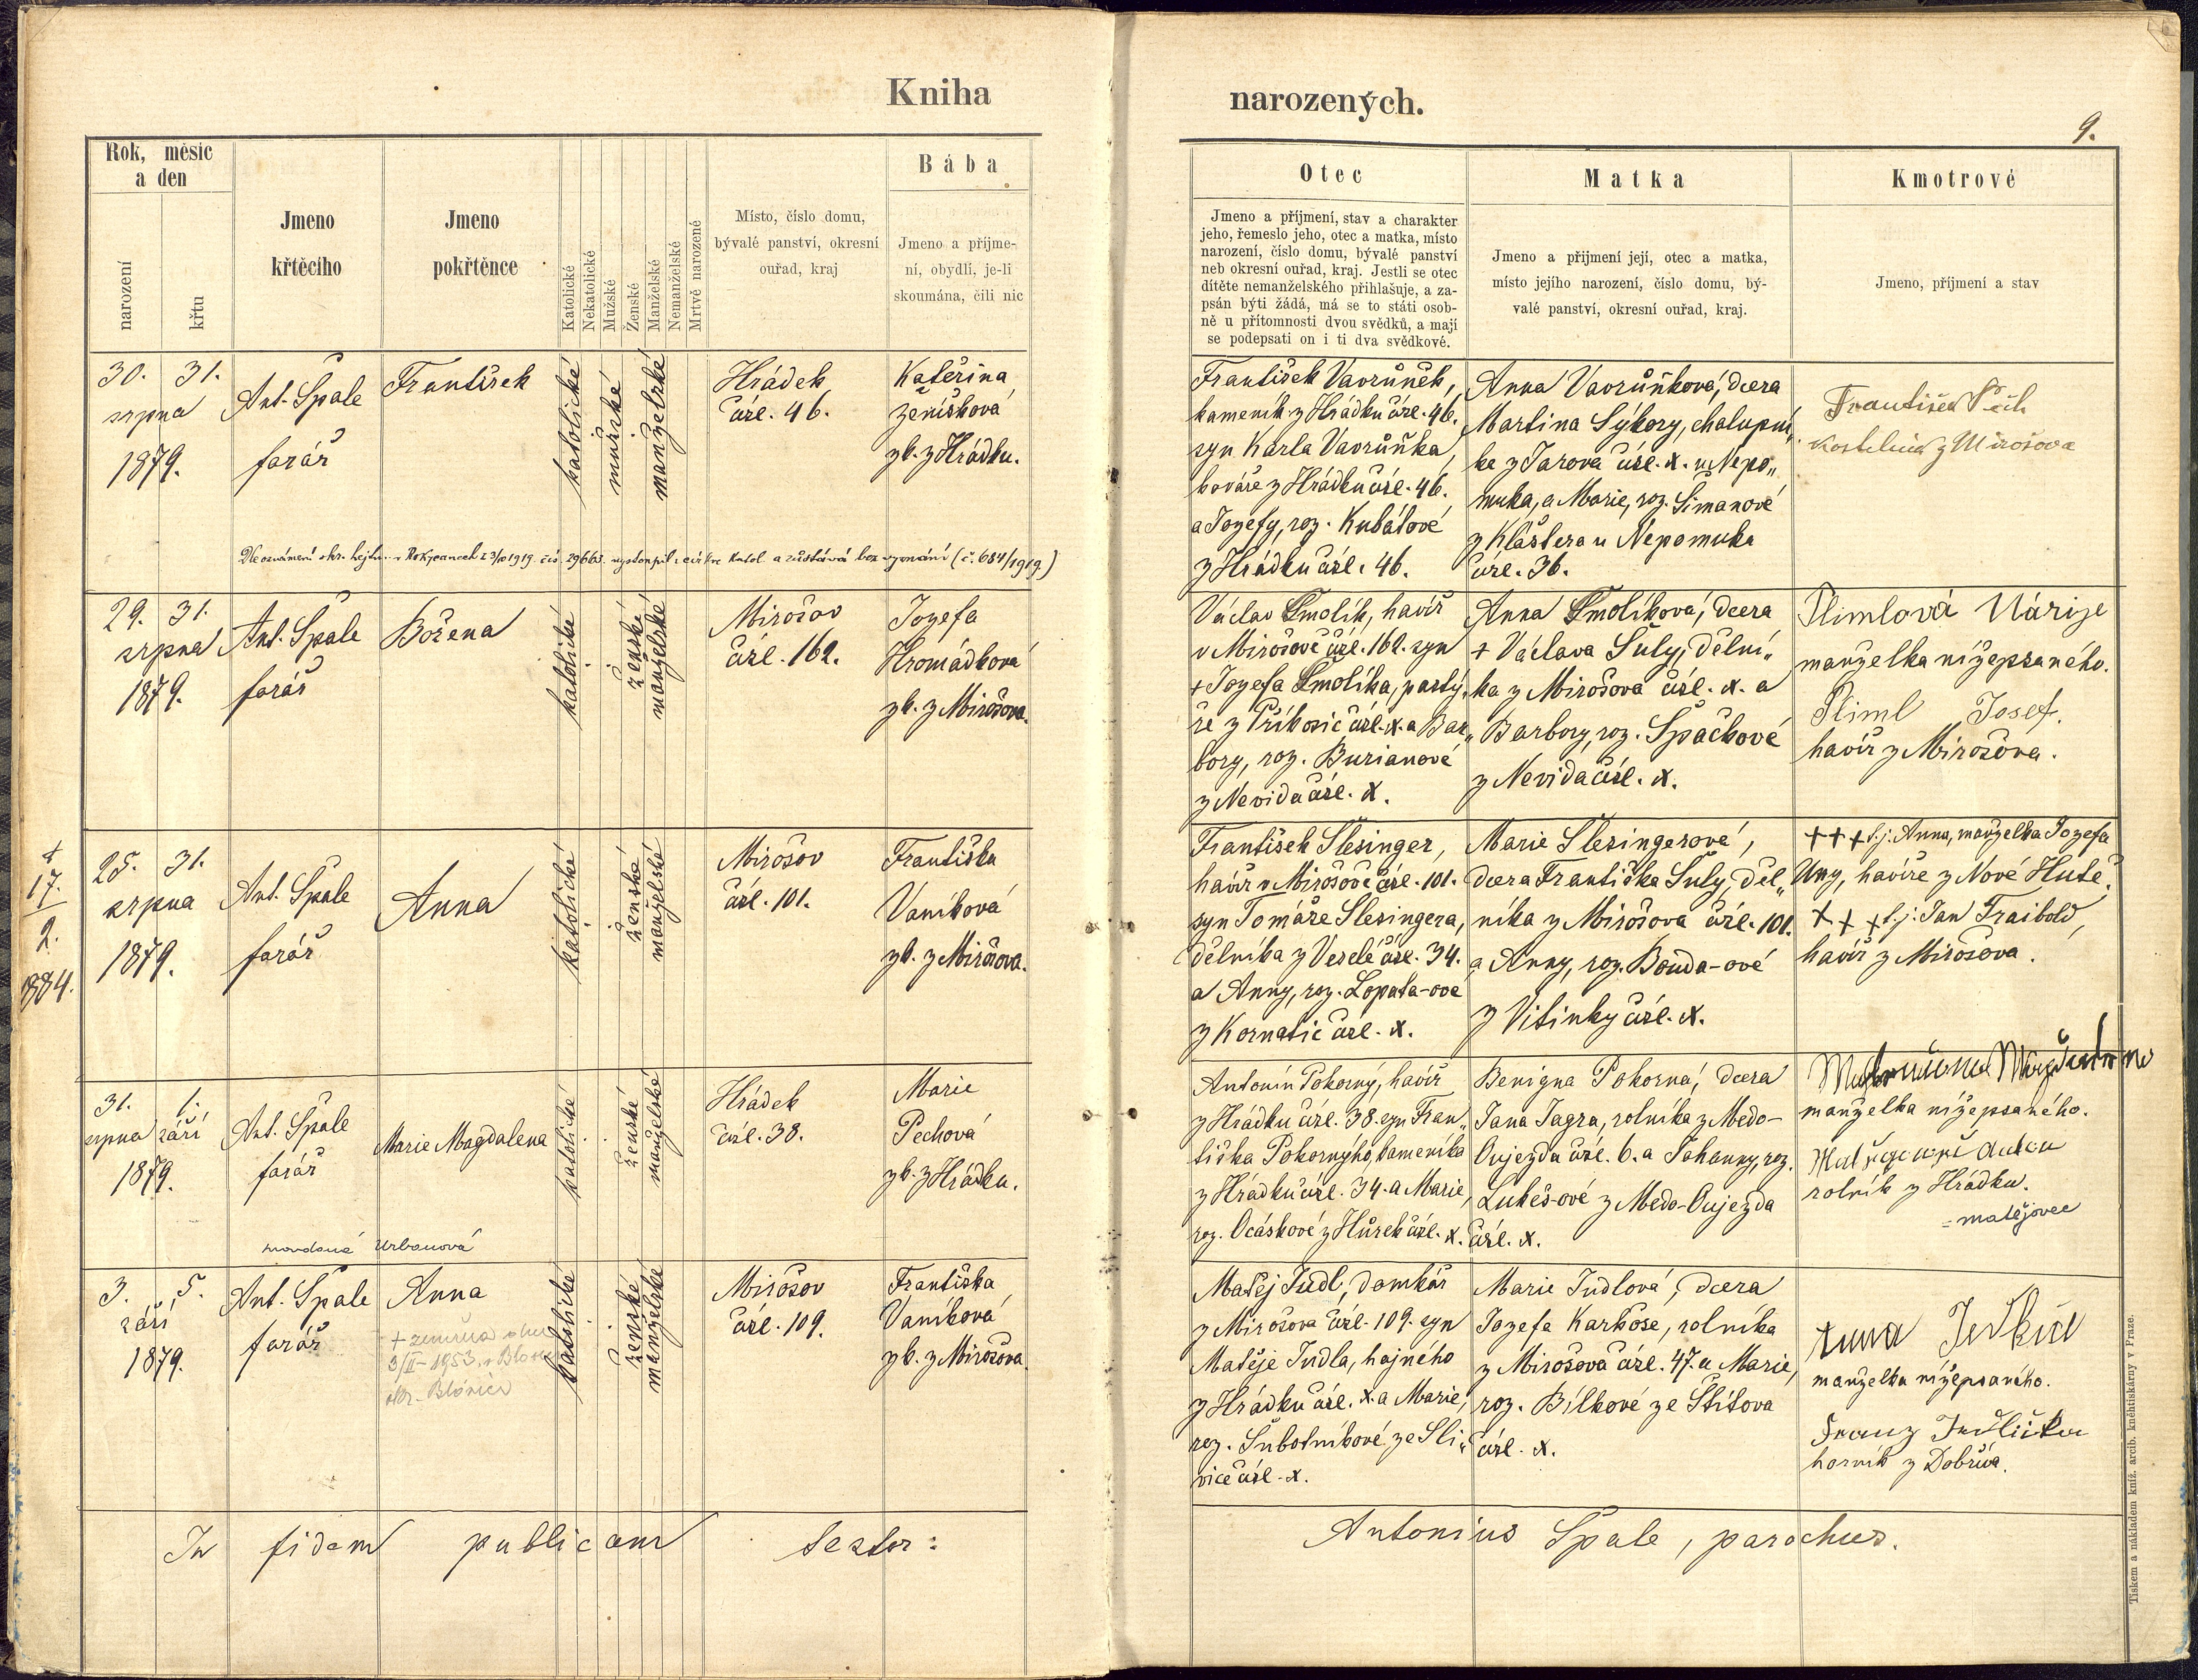 Kniha narozených.
9.
Rok, měsíc
a den
narození
křtu
Jmeno
křtěcího
Jmeno
pokřtěnce
Katolické
Nekatolické
Mužské
Ženské
Manželské
Nemanželské
Mrtvě narozené
Místo, číslo domu,
bývalé panství, okresní
ouřad, kraj
Bába
Jmeno a příjme-
ní, obydlí, je-li
skoumána, čili nic
Otec
Jmeno a příjmení, stav a charakter
jeho, řemeslo jeho, otec a matka, místo
narození, číslo domu, bývalé panství
neb okresní ouřad, kraj. Jestli se otec
dítěte nemanželského přihlašuje, a za-
psán býti žádá, má se to státi osob-
ně u přítomnosti dvou svědků, a mají
se podepsati on i ti dva svědkové.
Matka
Jmeno a přijmení její, otec a matka,
místo jejího narození, číslo domu, bý-
valé panství, okresní ouřad, kraj.
Kmotrové
Jmeno, příjmení a stav
30. 31.
srpna
1879.
Ant. Špale
farář
František
katolické
mužské
manželské
Hrádek
čísl. 46.
Kateřina
Ženíšková
zk. z Hrádku.
František Vavruněk,
kameník z Hrádku čísl. 46.
syn Karla Vavruňka,
kováře z Hrádku čísl. 46.
a Jozefy, roz. Kubátové
z Hrádku čísl. 46.
Anna Vavruňková, dcera
Martina Sýkory, chalupní„
ka z Jarova čísl. x. u Nepo„
muka, a Marie, roz. Šimanové
z Kláštera u Nepomuka
čísl. 36.
František
kostelník z Mirošova
v Rokycanech z 3/10 1919 čís. 29663. vystoupil z církve katol. a zůstává bez vyznání (č. 684/1919)
29. 31.
srpna
1879.
Ant. Špale
farář
Božena
katolické
ženské
manželské
Mirošov
čísl. 162.
Jozefa
Hromádková
zk. z Mirošova.
Václav Smolík, havíř
v Mirošově čísl. 162. syn
+ Jozefa Smolíka, pastý„
ře z Příkosic čísl. x. a Bar„
bory, roz. Burianové
z Nevida čísl. x.
Anna Smolíková, dcera
+ Václava Šuly, dělní„
ka z Mirošova čísl. x. a
Barbory, roz. Špačkové
z Nevida čísl. x.
Plimlová Márije
manželka nížepsaného.
Pliml Josef.
havíř z Mirošova.
+
17.
2.
1884.
25. 31.
srpna
1879.
Ant. Špale
farář
Anna
katolické
ženské
manželské
Mirošov
čísl. 101.
Františka
Vaníková
zk. z Mirošova.
František Slesinger,
havíř v Mirošově čísl. 101.
syn Tomáše Slesingera,
dělníka z Veselé čísl. 34.
a Anny, roz. Lopata-ové
z Kornatic čísl. x.
Marie Slesingerová,
dcera Františka Šuly, děl„
níka z Mirošova čísl. 101.
a Anny, roz. Bouda-ové
z Vitinky čísl. x.
+++ t. j. Anna, manželka Jozefa
Uny, havíře z Nové Hutě.
+++ t. j: Jan Traibold,
havíř z Mirošova.
31. 1.
srpna září
1879.
Ant. Špale
farář
Marie Magdalena
katolické
ženské
manželské
Hrádek
čísl. 38.
Marie
Pechová
zk. z Hrádku.
Antonín Pokorný, havíř
z Hrádku čísl. 38. syn Fran„
tiška Pokornýho, kameníka
z Hrádku čísl. 34. a Marie,
roz. Ocáskové z Hůrek čísl. x.
Benigna Pokorná, dcera
Jana Jagra, rolníka z Medo-
Oujezda čísl. 6. a Johanny, roz.
Lukeš-ové z Medo-Oujezda
čísl. x.
manželka nížepsaného.
rolník z Hrádku.
= matějovec
provdaná Urbanová
3. 5.
září
1879.
Ant. Špale
farář
Anna
+ zemřela dne
3/II-1953, v Blovic
okr. Blovice
katolické
ženské
manželské
Mirošov
čísl. 109.
Františka
Vaníková
zk. z Mirošova
Matěj Judl, domkář
z Mirošova čísl. 109. syn
Matěje Judla, hajného
z Hrádku čísl. x. a Marie,
roz. Šubotníkové, ze Sli„
vice čísl. x.
Marie Judlová, dcera
Jozefa Karkose, rolníka
z Mirošova čísl. 47. a Marie,
roz. Bílkové ze Štítova
čísl. x.
Anna
manželka nížepsaného.
Franz
horník z Dobříva.
In fidem publicam testor: Antonius Špale, parochus.
Tiskem a nákladem kníž. arcib. kněhtiskárny v Praze.